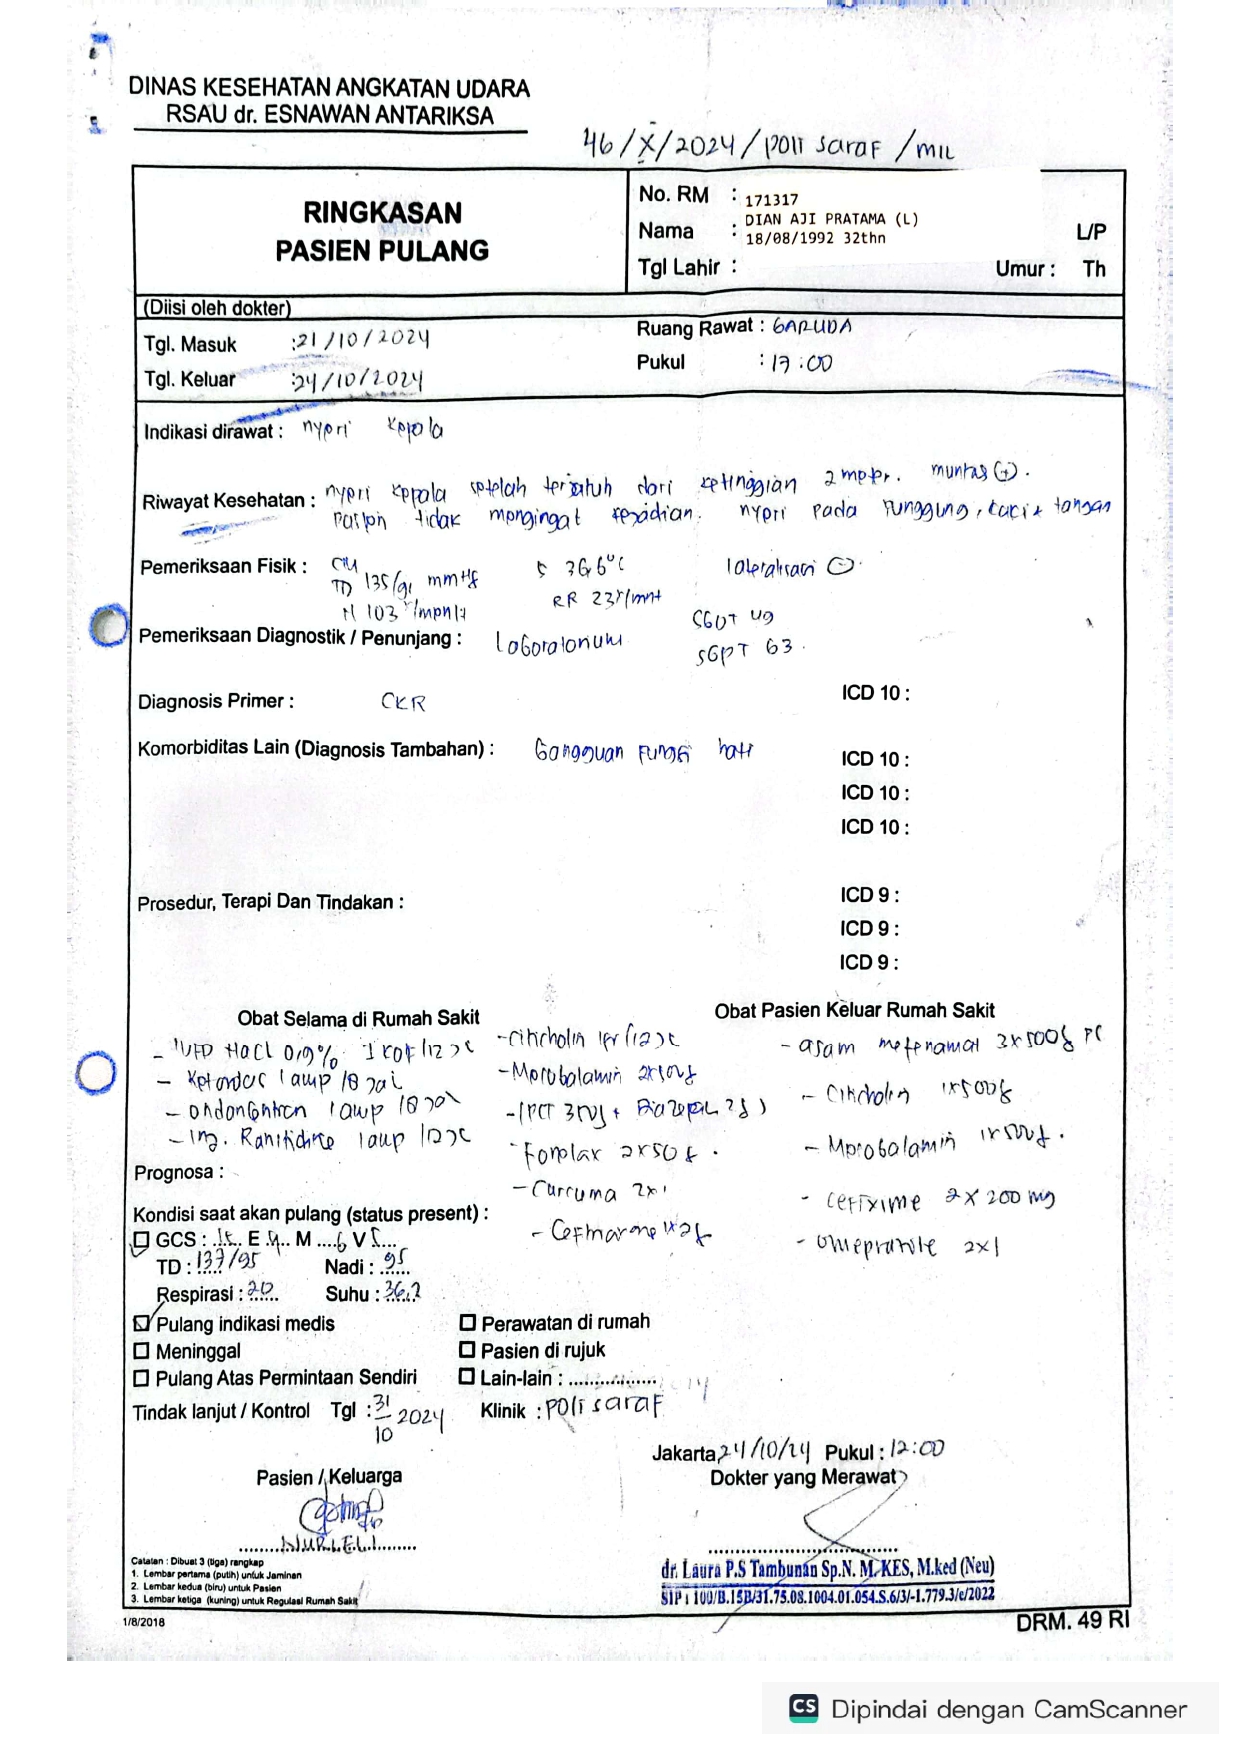 DINAS KESEHATAN ANGKATAN UDARA
RSAU dr. ESNAWAN ANTARIKSA
46/X/2024/poli saraf/MIL
RINGKASAN
PASIEN PULANG
No. RM : 171317
Nama : DIAN AJI PRATAMA (L)
18/08/1992 32thn
L/P
Tgl Lahir : Umur : Th
(Diisi oleh dokter)
Tgl. Masuk : 21/10/2024
Ruang Rawat : GARUDA
Tgl. Keluar : 24/10/2024
Pukul : 17:00
Indikasi dirawat : nyeri kepala
Riwayat Kesehatan : nyeri kepala setelah terjatuh dari ketinggian 2 meter. muntas (+).
pasien tidak mengingat kejadian. nyeri pada punggung, kaki + tangan
Pemeriksaan Fisik : CM
TD 135/91 mmHg
N 103 x/menit
S 36,6°C
RR 23x/mnt
lateralisasi (-).
Pemeriksaan Diagnostik / Penunjang : Laboratorium
SGOT 49
SGPT 63.
Diagnosis Primer : CKR
ICD 10 :
Komorbiditas Lain (Diagnosis Tambahan) : Gangguan Fungsi hati
ICD 10 :
ICD 10 :
ICD 10 :
Prosedur, Terapi Dan Tindakan :
ICD 9 :
ICD 9 :
ICD 9 :
Obat Selama di Rumah Sakit
- IVFD NaCl 0,9% 1 kolf/12
- 1 amp/8
- 1 amp/8
- Inj. Ranitidine 1 amp/12
- Citicholin
- Mecobalamin
- (PCT + Diazepam )
- 2x50
- Curcuma 2x1
-
Obat Pasien Keluar Rumah Sakit
- asam mefenamat 3x500
- Citicholin 1x500
- Mecobalamin 1x500
- cefixime 2 x 200 mg
- omeprazole 2x1
Prognosa :
Kondisi saat akan pulang (status present) :
GCS : 15 E 4 M 6 V 5
TD : 137/95 Nadi : 95
Respirasi : 20 Suhu : 36,2
Pulang indikasi medis
Meninggal
Pulang Atas Permintaan Sendiri
Perawatan di rumah
Pasien di rujuk
Lain-lain : ................
Tindak lanjut / Kontrol Tgl : 31/10 2024 Klinik : poli saraf
Jakarta, 24/10/24 Pukul : 12:00
Pasien / Keluarga
Dokter yang Merawat
NURLELI
dr. Laura P.S Tambunan Sp.N. M.KES, M.ked (Neu)
SIP : 100/B.15B/31.75.08.1004.01.054.S.6/3/-1.779.3/e/2022
Catatan : Dibuat 3 (tiga) rangkap
1. Lembar pertama (putih) untuk Jaminan
2. Lembar kedua (biru) untuk Pasien
3. Lembar ketiga (kuning) untuk Regulasi Rumah Sakit
1/8/2018
DRM. 49 RI
CS Dipindai dengan CamScanner